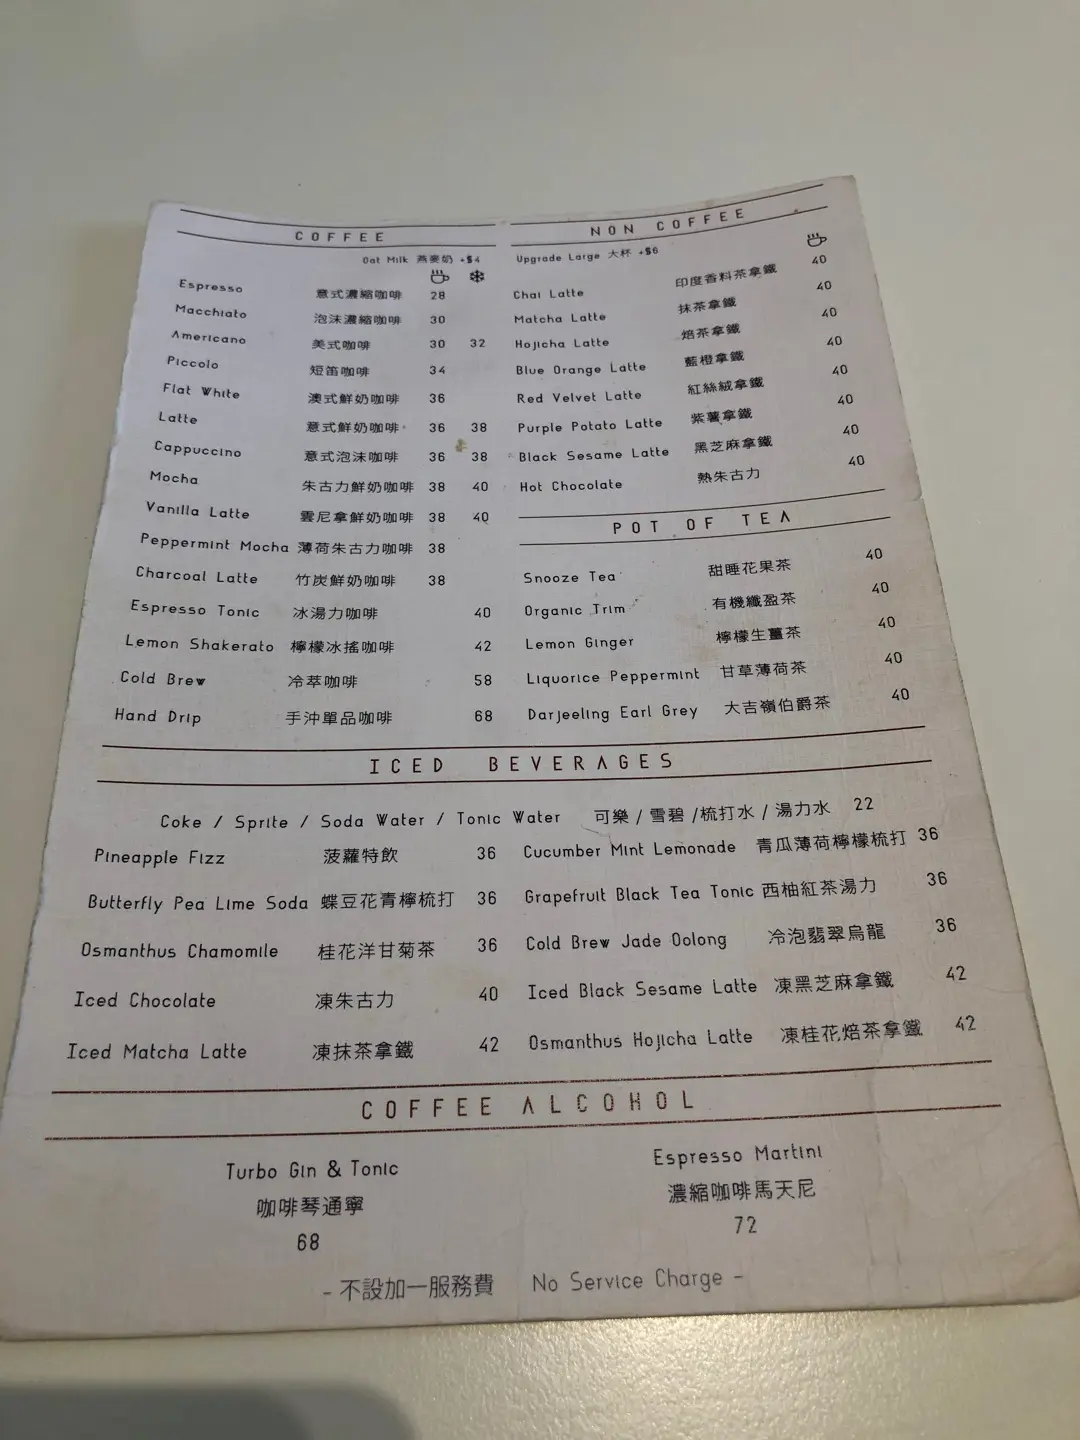 COFFEE
Oat Milk 燕麥奶 +$4
Espresso 意式濃縮咖啡 28
Macchiato 泡沫濃縮咖啡 30
Americano 美式咖啡 30 32
Piccolo 短笛咖啡 34
Flat White 澳式鮮奶咖啡 36
Latte 意式鮮奶咖啡 36 38
Cappuccino 意式泡沫咖啡 36 38
Mocha 朱古力鮮奶咖啡 38 40
Vanilla Latte 雲尼拿鮮奶咖啡 38 40
Peppermint Mocha 薄荷朱古力咖啡 38
Charcoal Latte 竹炭鮮奶咖啡 38
Espresso Tonic 冰湯力咖啡 40
Lemon Shakerato 檸檬冰搖咖啡 42
Cold Brew 冷萃咖啡 58
Hand Drip 手沖單品咖啡 68
NON COFFEE
Upgrade Large 大杯 +$6
Chai Latte 印度香料茶拿鐵 40
Matcha Latte 抹茶拿鐵 40
Hojicha Latte 焙茶拿鐵 40
Blue Orange Latte 藍橙拿鐵 40
Red Velvet Latte 紅絲絨拿鐵 40
Purple Potato Latte 紫薯拿鐵 40
Black Sesame Latte 黑芝麻拿鐵 40
Hot Chocolate 熱朱古力 40
POT OF TEA
Snooze Tea 甜睡花果茶 40
Organic Trim 有機纖盈茶 40
Lemon Ginger 檸檬生薑茶 40
Liquorice Peppermint 甘草薄荷茶 40
Darjeeling Earl Grey 大吉嶺伯爵茶 40
ICED BEVERAGES
Coke / Sprite / Soda Water / Tonic Water 可樂 / 雪碧 /梳打水 / 湯力水 22
Pineapple Fizz 菠蘿特飲 36
Cucumber Mint Lemonade 青瓜薄荷檸檬梳打 36
Butterfly Pea Lime Soda 蝶豆花青檸梳打 36
Grapefruit Black Tea Tonic 西柚紅茶湯力 36
Osmanthus Chamomile 桂花洋甘菊茶 36
Cold Brew Jade Oolong 冷泡翡翠烏龍 36
Iced Chocolate 凍朱古力 40
Iced Black Sesame Latte 凍黑芝麻拿鐵 42
Iced Matcha Latte 凍抹茶拿鐵 42
Osmanthus Hojicha Latte 凍桂花焙茶拿鐵 42
COFFEE ALCOHOL
Turbo Gin & Tonic
咖啡琴通寧
68
Espresso Martini
濃縮咖啡馬天尼
72
- 不設加一服務費 No Service Charge -